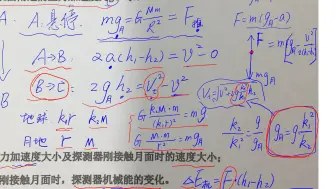 A. A.悬停. mg_A = G Mm/R² = F推
F = m(g_A - a)
A→B: 2a(h₁-h₂) = v²-0
B→C: 2g_A h₂ = V_t² - v²
地球 k₁r k₂M G k₂M·m/(k₁r)² = mg
月球 r M G M·m/r² = mg_A
k₂/k₁² = g/g_A
g_A = g k₁²/k₂
力加速度大小及探测器刚接触月面时的速度大小；
刚接触月面时，探测器机械能的变化。 ΔE = F·(h₁-h₂)